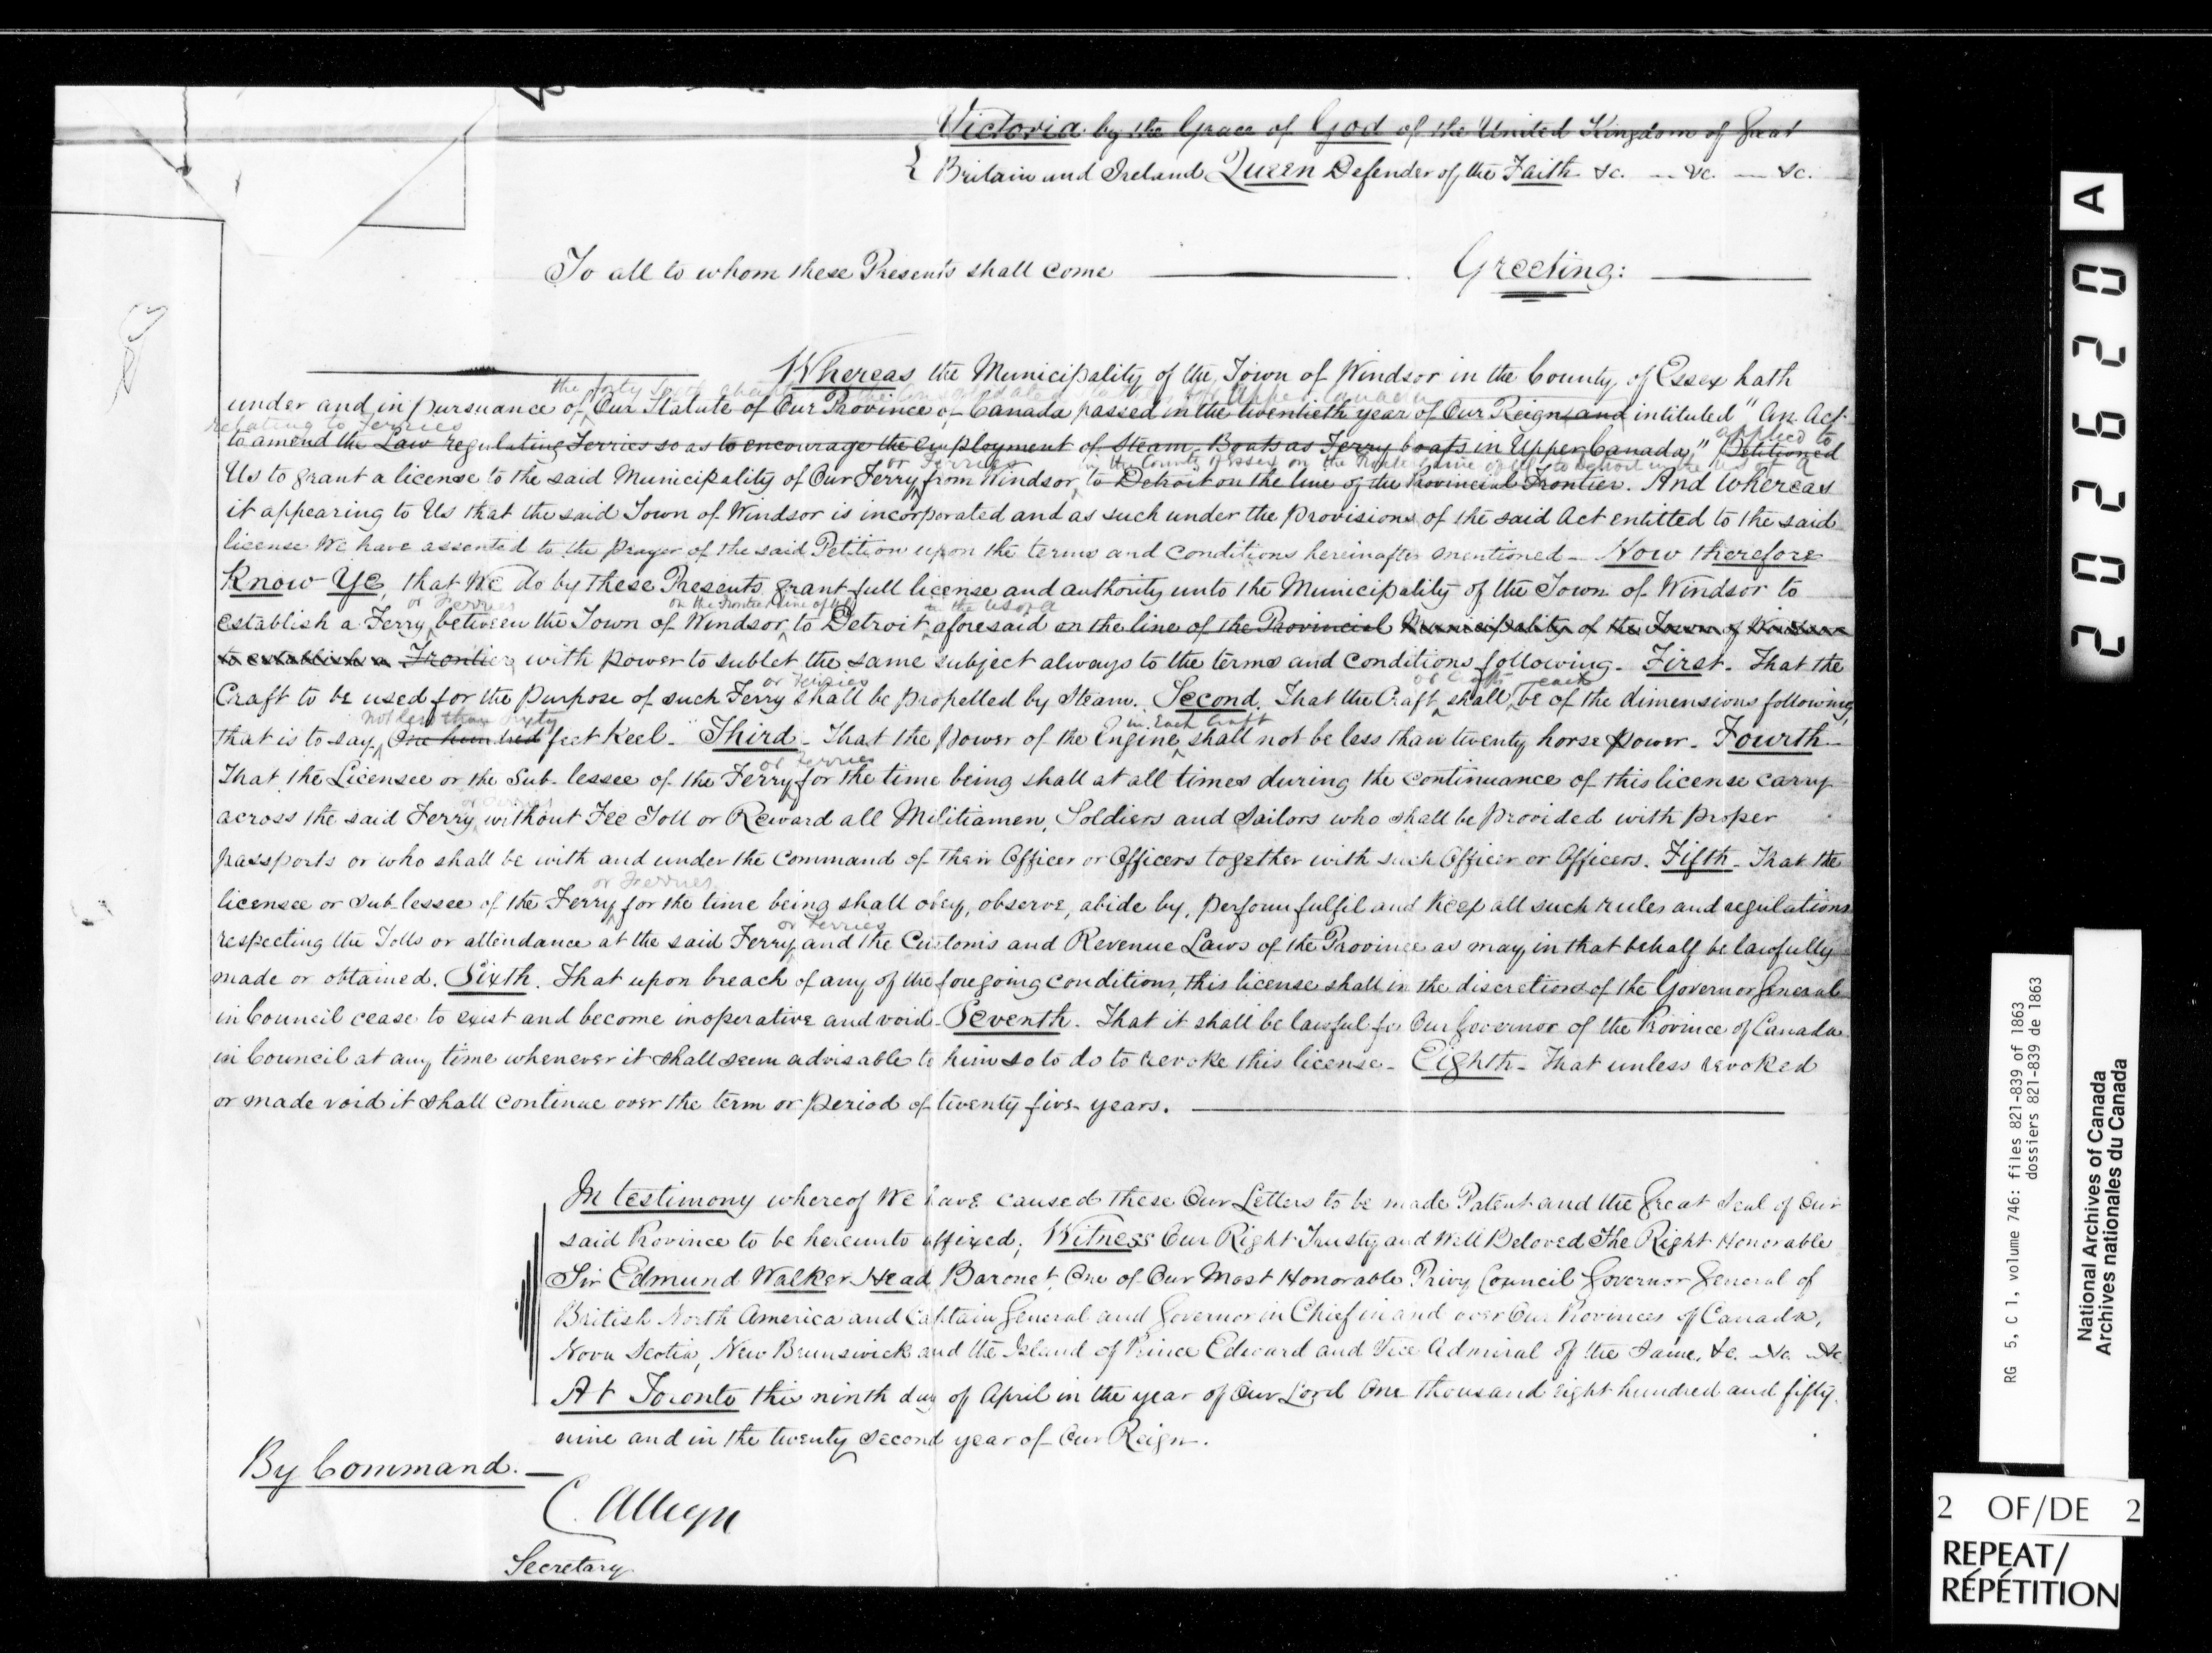 Victoria by the Grace of God of the United Kingdom of Great
Britain and Ireland Queen Defender of the Faith &c. — &c. — &c.
To all to whom these Presents shall come Greeting:
Whereas the Municipality of the Town of Windsor in the County of Essex hath
the forty Upper Canada
under and in pursuance of Our Statute of Our Province of Canada passed in the twentieth year of Our Reign and intituled "An Act
relating to Ferries
to amend the Law regulating Ferries so as to encourage the Employment of Steam Boats as Ferry boats in Upper Canada," Petitioned
applied to
or Ferries in the County of Essex on the
Us to grant a license to the said Municipality of Our Ferry from Windsor to Detroit on the line of the Provincial Frontier. And Whereas
it appearing to Us that the said Town of Windsor is incorporated and as such under the provisions of the said Act entitled to the said
license We have assented to the prayer of the said Petition upon the terms and conditions hereinafter mentioned - Now therefore
Know Ye, that We do by these Presents grant full license and authority unto the Municipality of the Town of Windsor to
or Ferries on the Frontier line of in the US of A
establish a Ferry between the Town of Windsor to Detroit aforesaid on the line of the Provincial Municipality of the Town of Windsor
to establish a Frontier, with power to sublet the same subject always to the terms and conditions following. First. That the
or Ferries or Crafts each
Craft to be used for the purpose of such Ferry shall be propelled by Steam. Second. That the Craft shall be of the dimensions following,
not less than sixty in Each Craft
that is to say, One hundred feet Keel. Third. That the power of the Engine shall not be less than twenty horse power. Fourth.
or Ferries
That the Licensee or the Sub-lessee of the Ferry for the time being shall at all times during the continuance of this license carry
or Ferries
across the said Ferry without Fee Toll or Reward all Militiamen, Soldiers and Sailors who shall be provided with proper
passports or who shall be with and under the Command of their Officer or Officers together with such Officer or Officers. Fifth. That the
or Ferries
licensee or sub-lessee of the Ferry for the time being shall obey, observe, abide by, perform fulfil and Keep all such rules and regulations
or Ferries
respecting the Tolls or attendance at the said Ferry and the Customs and Revenue Laws of the Province as may in that behalf be lawfully
made or obtained. Sixth. That upon breach of any of the foregoing conditions, this license shall in the discretion of the Governor General
in Council cease to exist and become inoperative and void. Seventh. That it shall be lawful for Our Governor of the Province of Canada
in Council at any time whenever it shall seem advisable to him so to do to revoke this license. Eighth. That unless revoked
or made void it shall continue over the term or period of twenty five years.
In testimony whereof We have caused these Our Letters to be made Patent and the Great Seal of Our
said Province to be hereunto affixed; Witness Our Right Trusty and Well Beloved The Right Honorable
Sir Edmund Walker Head, Baronet, One of Our Most Honorable Privy Council Governor General of
British North America and Captain General and Governor in Chief in and over Our Provinces of Canada,
Nova Scotia, New Brunswick and the Island of Prince Edward and Vice Admiral of the Same, &c. &c. &c.
At Toronto this ninth day of April in the year of Our Lord One thousand eight hundred and fifty
nine and in the twenty second year of Our Reign.
By Command.
C. Alleyn
Secretary
202620 A
RG 5, C 1, volume 746: files 821-839 of 1863
dossiers 821-839 de 1863
National Archives of Canada
Archives nationales du Canada
2 OF/DE 2
REPEAT/
RÉPÉTITION